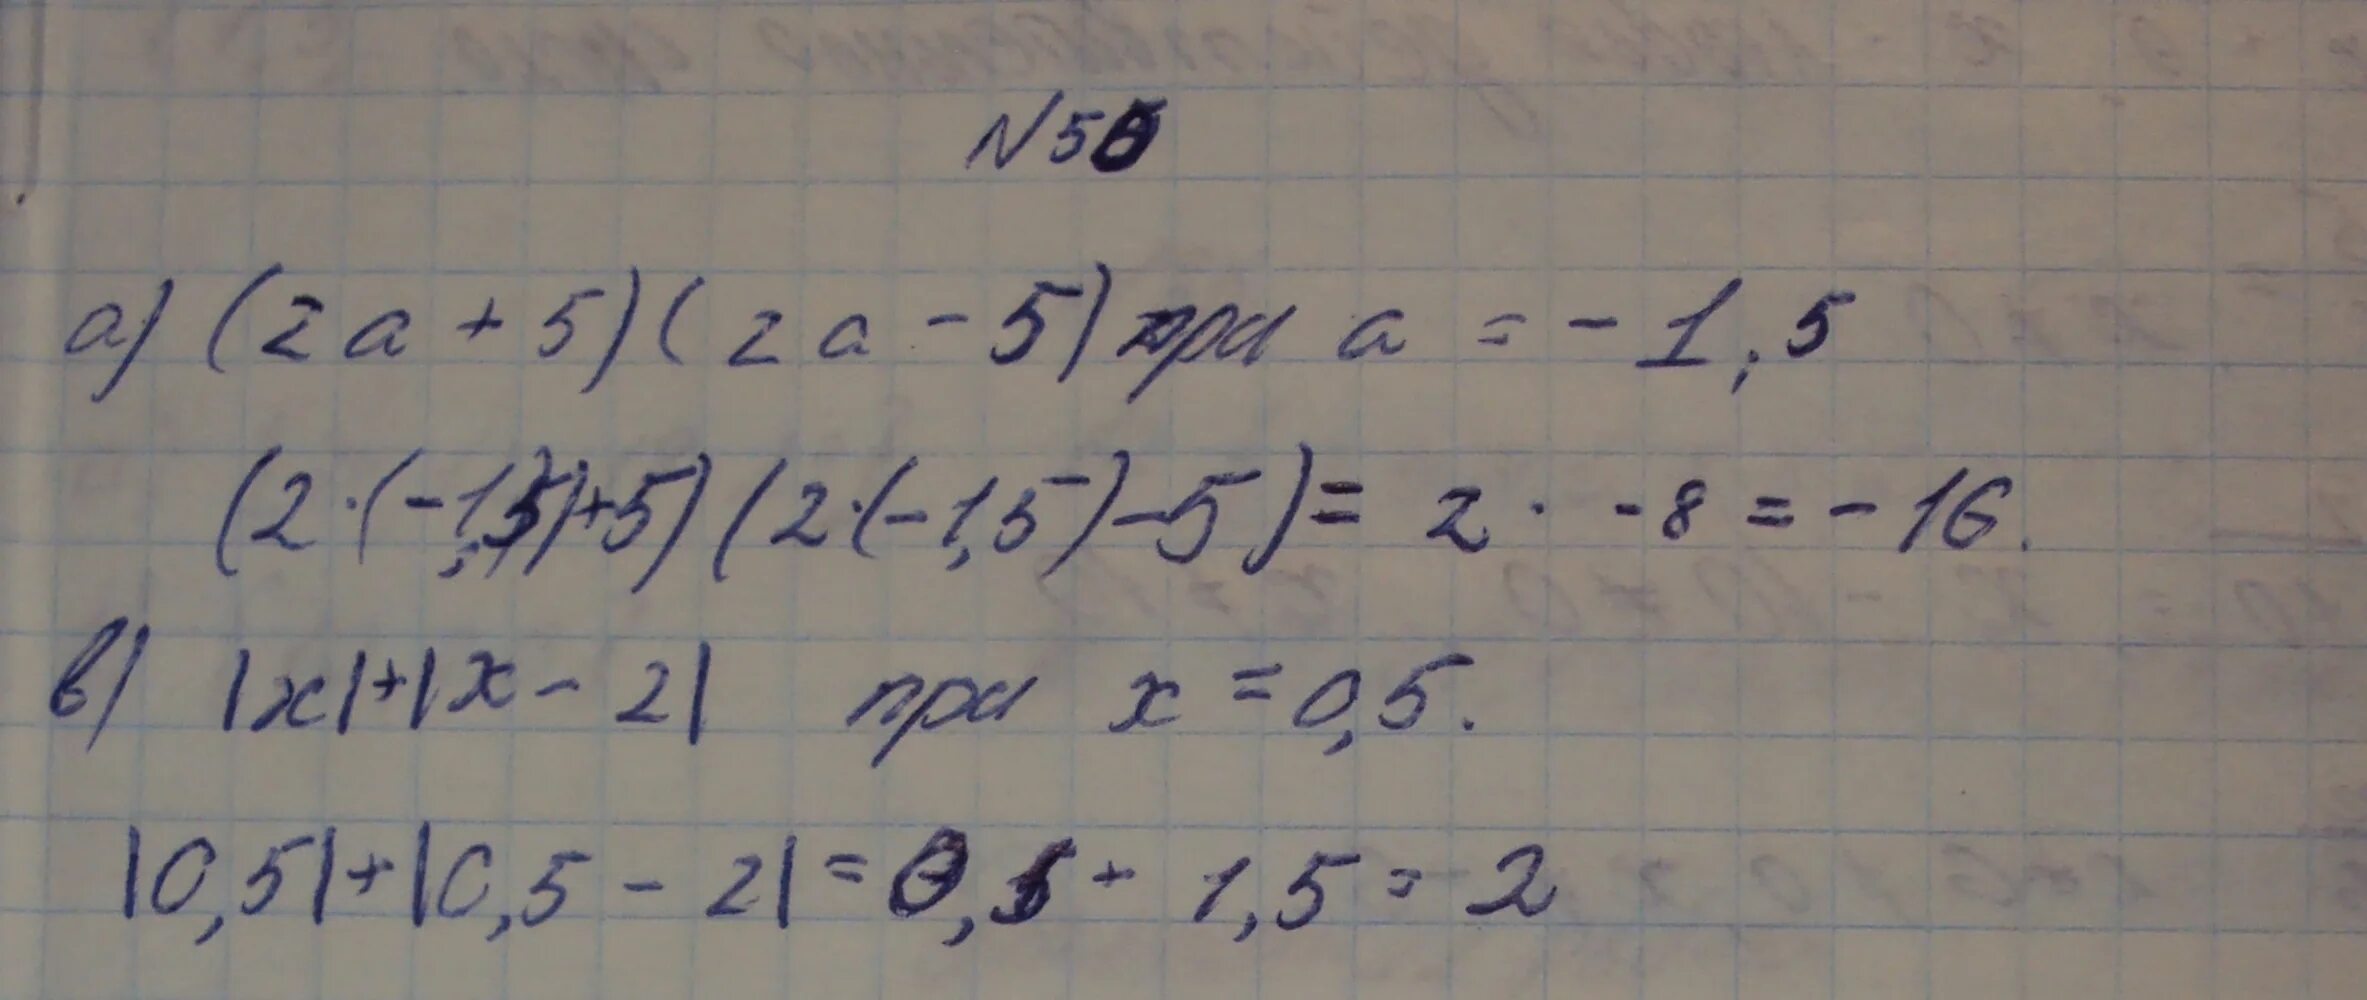 а) (2а + 5)(2а - 5) при а = - 1,5
(2·(-1,5)+5)(2·(-1,5)-5) = 2 · -8 = - 16.
в) |х|+|х - 2| при х = 0,5.
|0,5|+|0,5 - 2| = 0,5 + 1,5 = 2